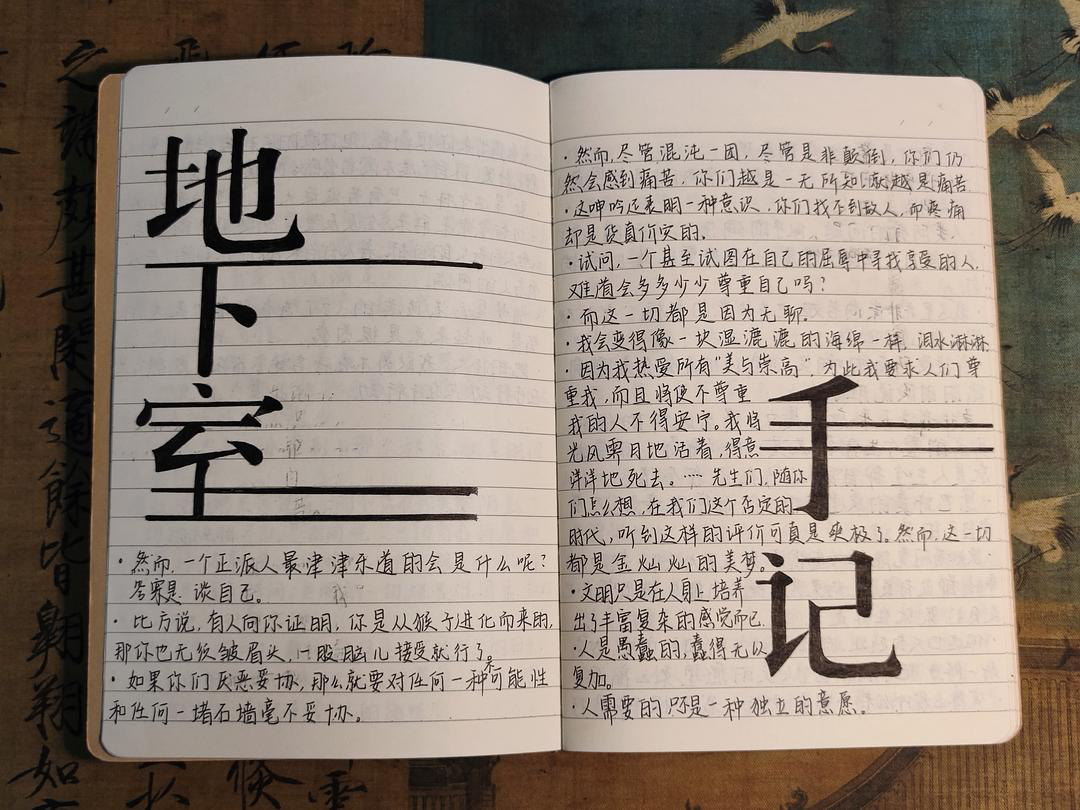 地
下
室
·然而,一个正派人最津津乐道的会是什么呢?
答案是:谈自己。
·比方说,有人向你证明,你是从猴子进化而来的,
那你也无须皱眉头,一股脑儿接受就行了。
·如果你们厌恶妥协,那么就要对任何一种不可能性
和任何一堵石墙毫不妥协。
·然而,尽管混沌一团,尽管是非颠倒,你们仍
然会感到痛苦,你们越是一无所知,就越是痛苦
·这呻吟还表明一种意识,你们找不到敌人,而疼痛
却是货真价实的。
·试问,一个甚至试图在自己的屈辱中寻找享受的人,
难道会多多少少尊重自己吗?
·而这一切都是因为无聊.
·我会变得像一块湿漉漉的海绵一样,泪水淋淋
·因为我热爱所有"美与崇高",为此我要求人们尊
重我,而且将使不尊重
我的人不得安宁。我将
光风霁日地活着,得意
洋洋地死去。……先生们,随你
们怎么想,在我们这个否定的
时代,听到这样的评价可真是爽极了。然而,这一切
都是金灿灿的美梦。
·文明只是在人身上培养
出了丰富复杂的感觉而已
·人是愚蠢的,蠢得无以
复加。
·人需要的只是一种独立的意愿。
手
记
之
如